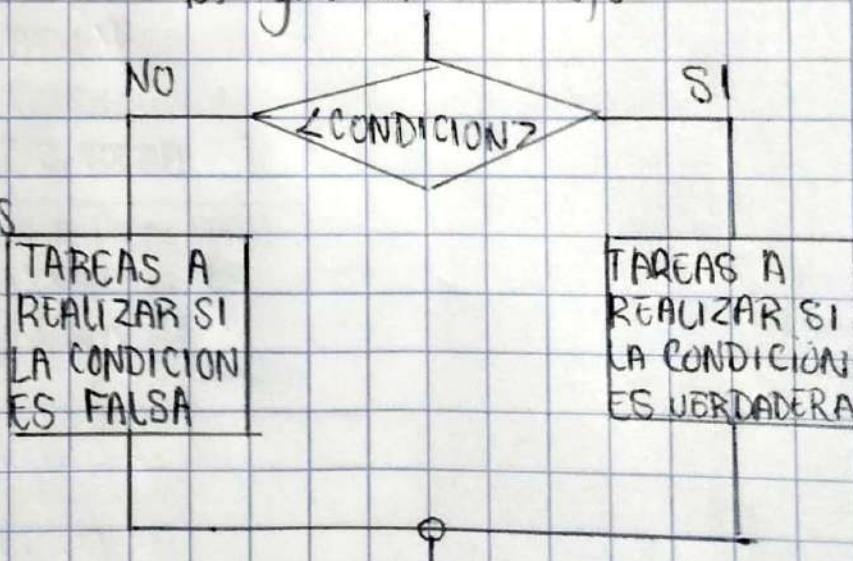 NO
SI
<CONDICION>
TAREAS A
REALIZAR SI
LA CONDICION
ES FALSA
TAREAS A
REALIZAR SI
LA CONDICION
ES VERDADERA